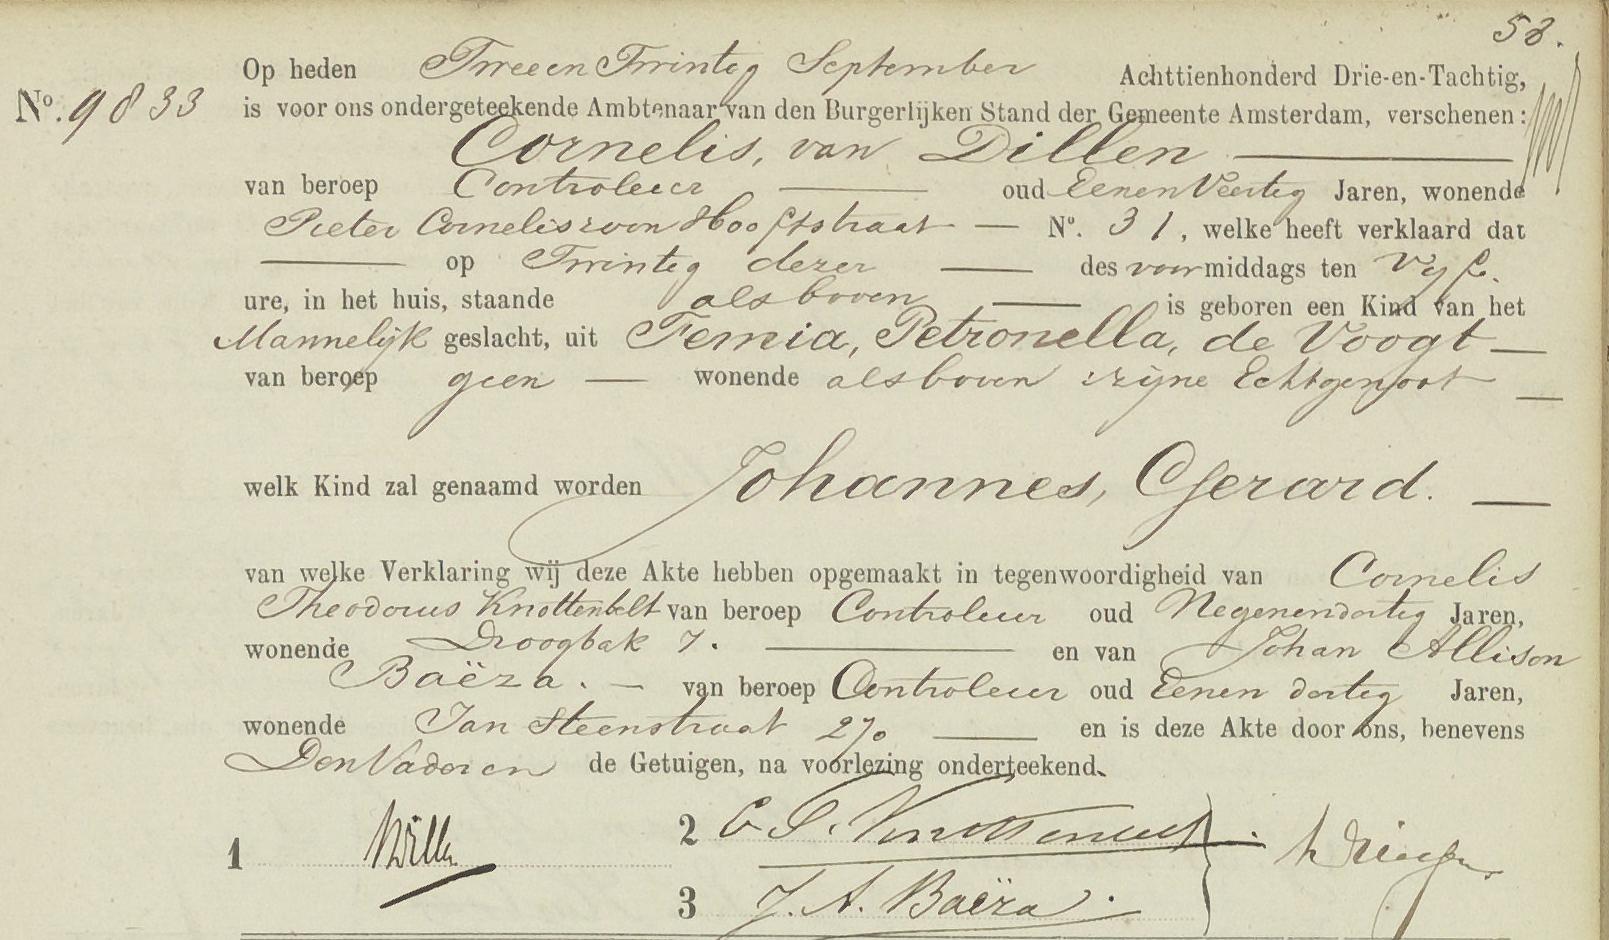 53.
Op heden Twee en Twintig September Achttienhonderd Drie-en-Tachtig,
No. 9833 is voor ons ondergeteekende Ambtenaar van den Burgerlijken Stand der Gemeente Amsterdam, verschenen:
Cornelis, van Dillen
van beroep Controleur oud Eenen Veertig Jaren, wonende
Pieter Corneliszoon Hooftstraat No. 31, welke heeft verklaard dat
op Twintig dezer des voormiddags ten Vijf.
ure, in het huis, staande als boven is geboren een Kind van het
Mannelijk geslacht, uit Femia, Petronella, de Voogt
van beroep geen wonende als boven zijne Echtgenoot
welk Kind zal genaamd worden Johannes, Gerard.
van welke Verklaring wij deze Akte hebben opgemaakt in tegenwoordigheid van Cornelis
Theodorus Knottenbelt van beroep Controleur oud Negenendertig Jaren,
wonende Droogbak 7. en van Johan Allison
Baëza. van beroep Controleur oud Eenen dertig Jaren,
wonende Jan Steenstraat en is deze Akte door ons, benevens
Den Vader en de Getuigen, na voorlezing onderteekend.
1 2
3 J. A. Baëza.